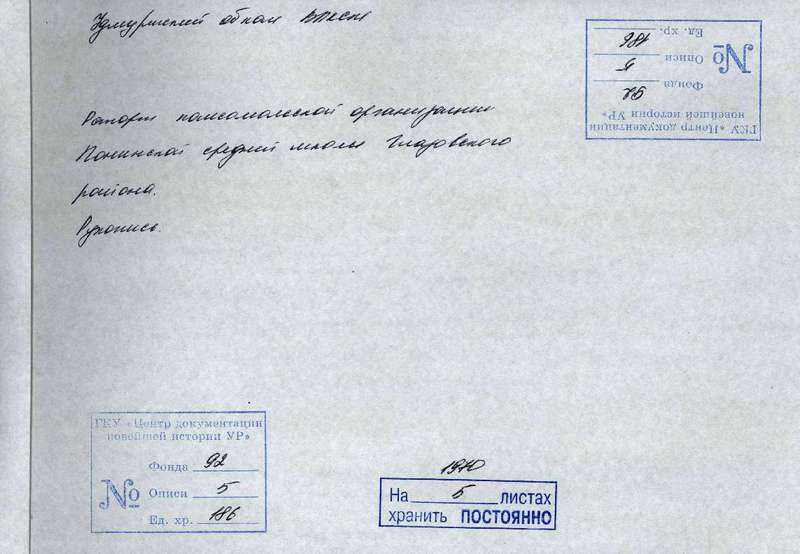 Удмуртский обком ВЛКСМ
Рапорт комсомольской организации
Понинской средней школы Глазовского
района.
Рукопись.
ГКУ «Центр документации
новейшей истории УР»
Фонда 92
№ Описи 5
Ед. хр. 186
ГКУ «Центр документации
новейшей истории УР»
Фонда 92
№ Описи 5
Ед. хр. 186
1970
На 5 листах
хранить ПОСТОЯННО